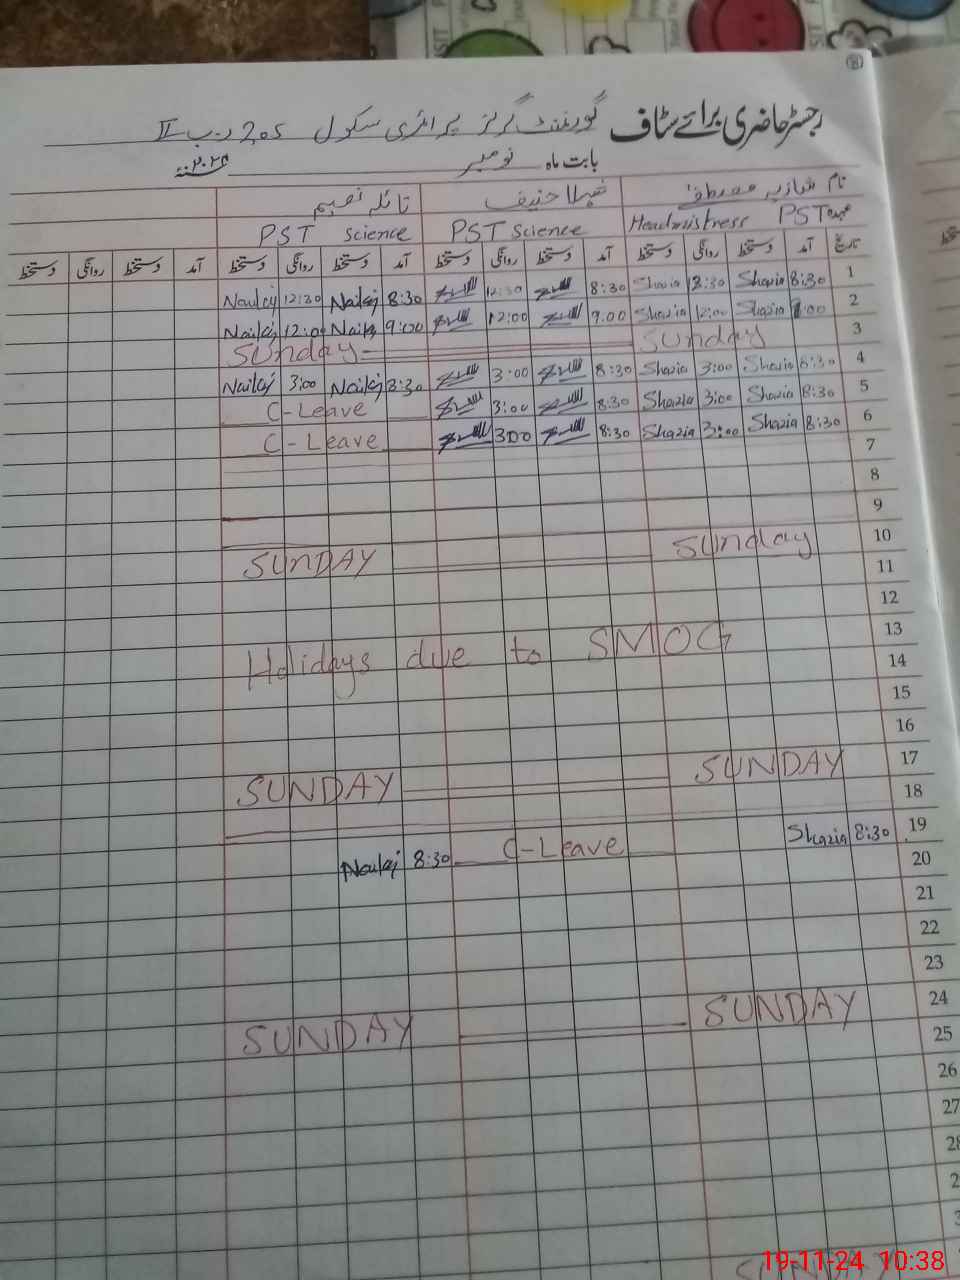 رجسٹر حاضری برائے سٹاف گورنمنٹ گرلز پرائمری سکول 205 ر۔ب II
بابت ماہ نومبر ۲۰۲۴
نام شازیہ مصطفیٰ شہلا حنیف نائلہ نعیم
عہدہ PST Headmistress PST Science PST Science
تاریخ آمد دستخط روانگی دستخط آمد دستخط روانگی دستخط آمد دستخط روانگی دستخط آمد دستخط روانگی دستخط
1 8:30 Shazia 12:30 Shazia 8:30 12:30 8:30 Nailaj 12:30 Nailaj
2 9:00 Shazia 12:00 Shazia 9:00 12:00 9:00 Nailaj 12:00 Nailaj
3 Sunday Sunday
4 8:30 Shazia 3:00 Shazia 8:30 3:00 8:30 Nailaj 3:00 Nailaj
5 8:30 Shazia 3:00 Shazia 8:30 3:00 C-Leave
6 8:30 Shazia 3:00 Shazia 8:30 300 C-Leave
7
8
9
10 Sunday SUNDAY
11
12
13 Holidays due to SMOG
14
15
16
17 SUNDAY SUNDAY
18
19 8:30 Shazia C-Leave 8:30 Nailaj
20
21
22
23
24 SUNDAY SUNDAY
25
26
27
19-11-24 10:38